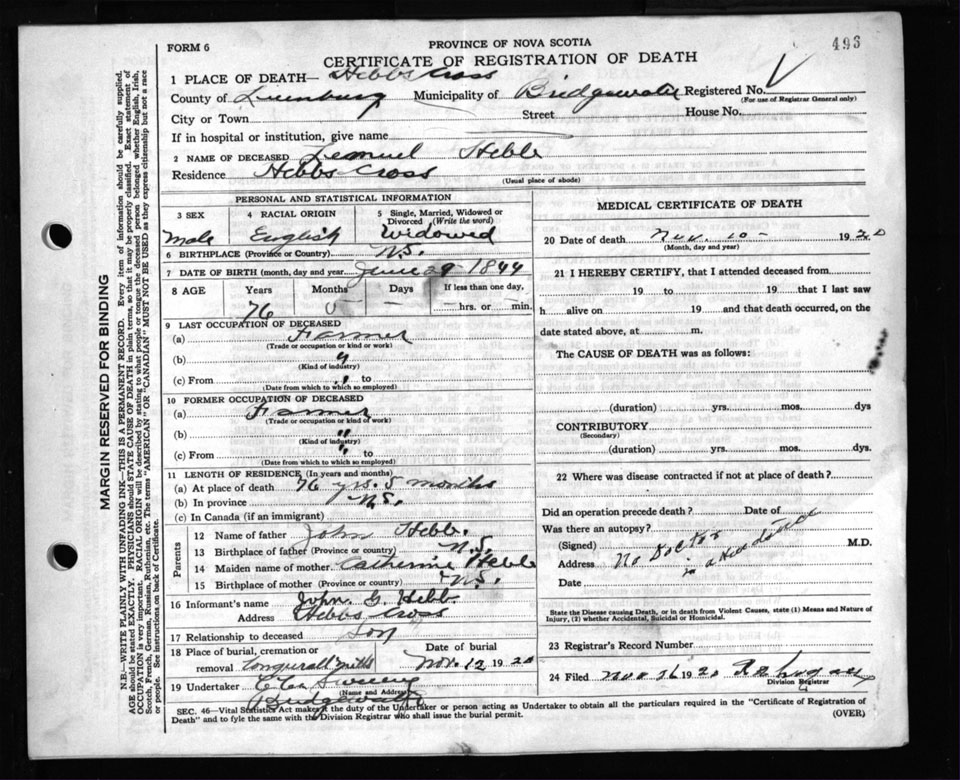 493
FORM 6
PROVINCE OF NOVA SCOTIA
CERTIFICATE OF REGISTRATION OF DEATH
1 PLACE OF DEATH— Hebbs Cross
County of Lunenburg Municipality of Bridgewater Registered No.
(For use of Registrar General only)
City or Town Street House No.
If in hospital or institution, give name
2 NAME OF DECEASED Lemuel Hebb
Residence Hebbs Cross
(Usual place of abode)
PERSONAL AND STATISTICAL INFORMATION
3 SEX 4 RACIAL ORIGIN 5 Single, Married, Widowed or Divorced (Write the word)
Male English Widowed
6 BIRTHPLACE (Province or Country) N.S.
7 DATE OF BIRTH (month, day and year) June 29 1844
8 AGE Years Months Days If less than one day,
76 5 — hrs. or min.
9 LAST OCCUPATION OF DECEASED
(a) Farmer
(Trade or occupation or kind or work)
(b) "
(Kind of industry)
(c) From " to
(Date from which to which so employed)
10 FORMER OCCUPATION OF DECEASED
(a) Farmer
(Trade or occupation or kind or work)
(b) "
(Kind of industry)
(c) From " to
(Date from which to which so employed)
11 LENGTH OF RESIDENCE (In years and months)
(a) At place of death 76 yrs. 5 months
(b) In province N.S.
(c) In Canada (if an immigrant)
Parents
12 Name of father John Hebb.
13 Birthplace of father (Province or country) N.S.
14 Maiden name of mother Catherine Hebb
15 Birthplace of mother (Province or country) N.S.
16 Informant's name John G. Hebb.
Address Hebbs Cross
17 Relationship to deceased Son
18 Place of burial, cremation or removal Conquerall Mills Date of burial Nov. 12 1920
19 Undertaker Sweeny
(Name and Address)
Bridgewater
MEDICAL CERTIFICATE OF DEATH
20 Date of death Nov. 10 - 1920
(Month, day and year)
21 I HEREBY CERTIFY, that I attended deceased from
19 to 19 that I last saw
h alive on 19 and that death occurred, on the
date stated above, at m.
The CAUSE OF DEATH was as follows:
(duration) yrs. mos. dys
CONTRIBUTORY
(Secondary)
(duration) yrs. mos. dys.
22 Where was disease contracted if not at place of death?
Did an operation precede death? Date of
Was there an autopsy?
(Signed) No Doctor M.D.
Address in attendance
Date
State the Disease causing Death, or in death from Violent Causes, state (1) Means and Nature of
Injury, (2) whether Accidental, Suicidal or Homicidal.
23 Registrar's Record Number
24 Filed Nov 16 1920
Division Registrar
SEC. 46—Vital Statistics Act makes it the duty of the Undertaker or person acting as Undertaker to obtain all the particulars required in the "Certificate of Registration of
Death" and to fyle the same with the Division Registrar who shall issue the burial permit.
(OVER)
MARGIN RESERVED FOR BINDING
N.B.—WRITE PLAINLY WITH UNFADING INK—THIS IS A PERMANENT RECORD. Every item of information should be carefully supplied.
AGE should be stated EXACTLY. PHYSICIANS should STATE CAUSE OF DEATH in plain terms, so that it may be properly classified. Exact statement of
OCCUPATION is very important. RACIAL ORIGIN will be described by stating to what people or tongue the deceased person belonged whether English, Irish,
Scotch, French, German, Russian, Ruthenian, etc. The terms "AMERICAN" or "CANADIAN" MUST NOT BE USED as they express citizenship but not a race
or people. See instructions on back of Certificate.